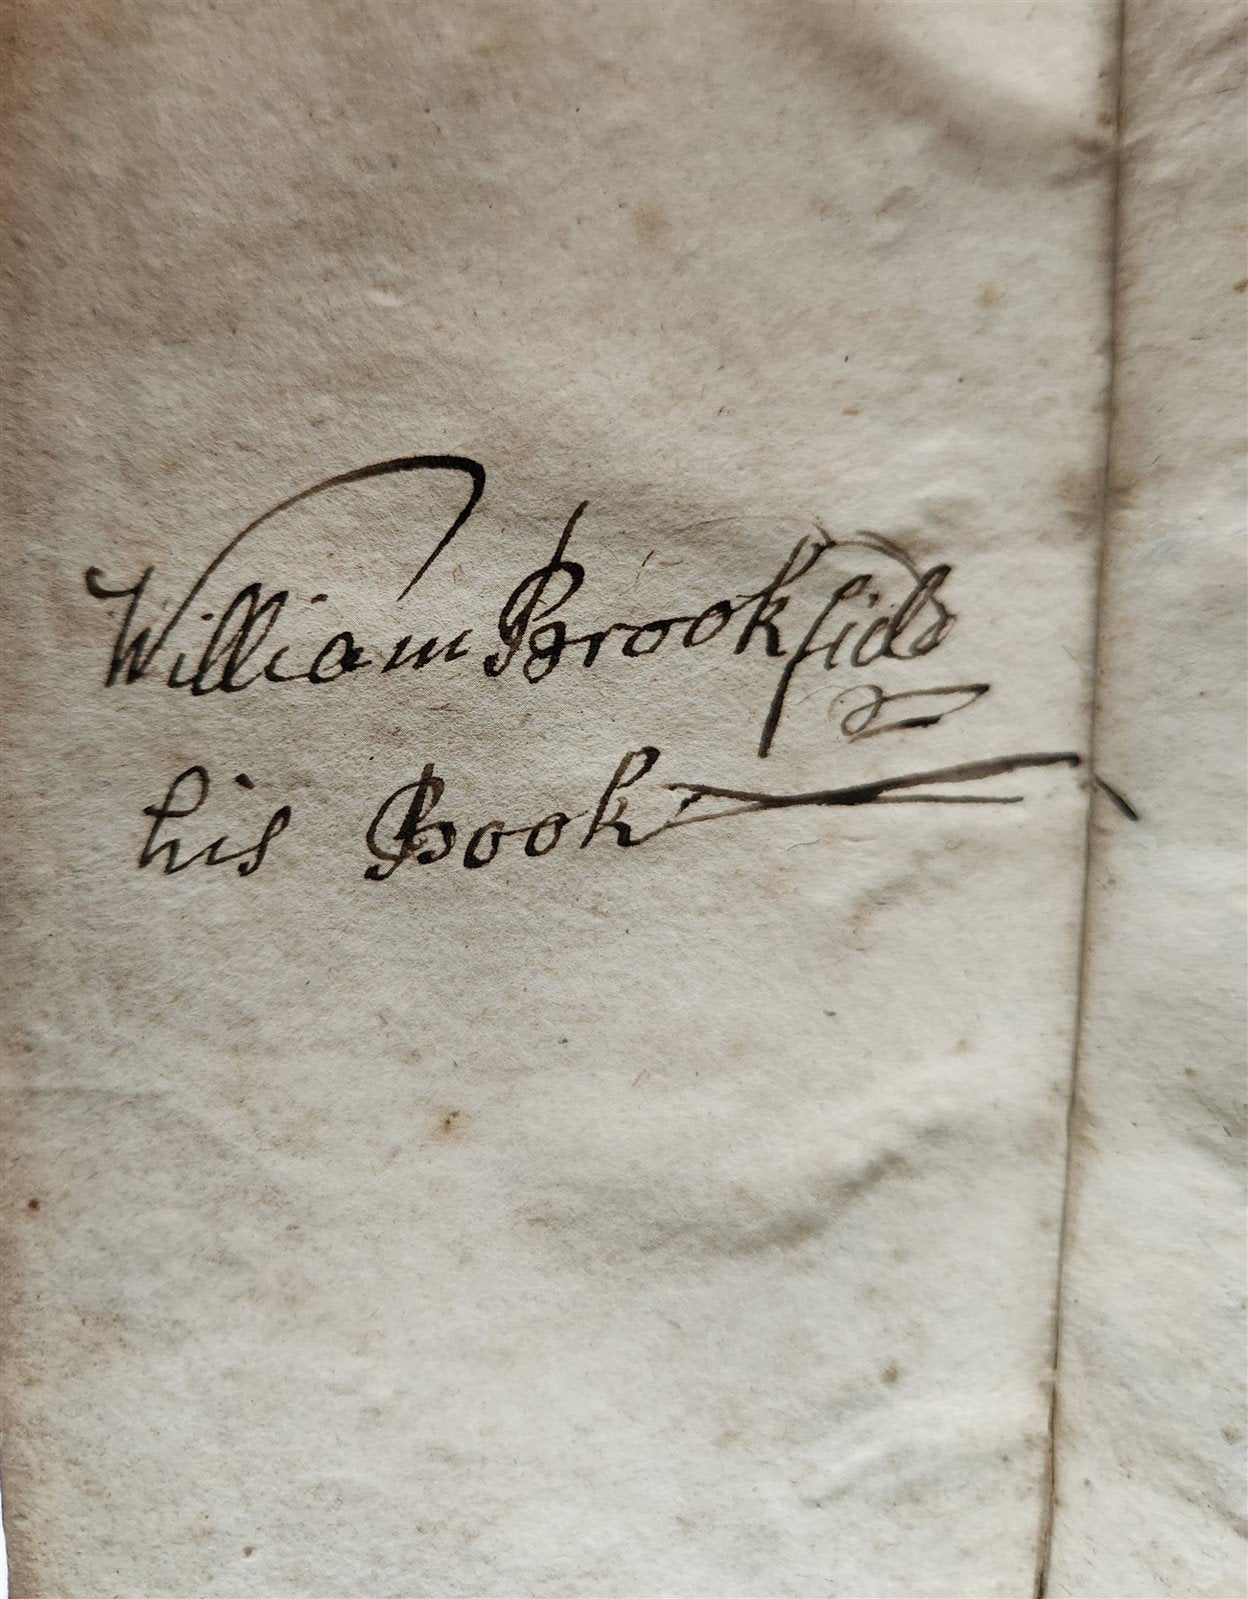 William Brookfield
his Book